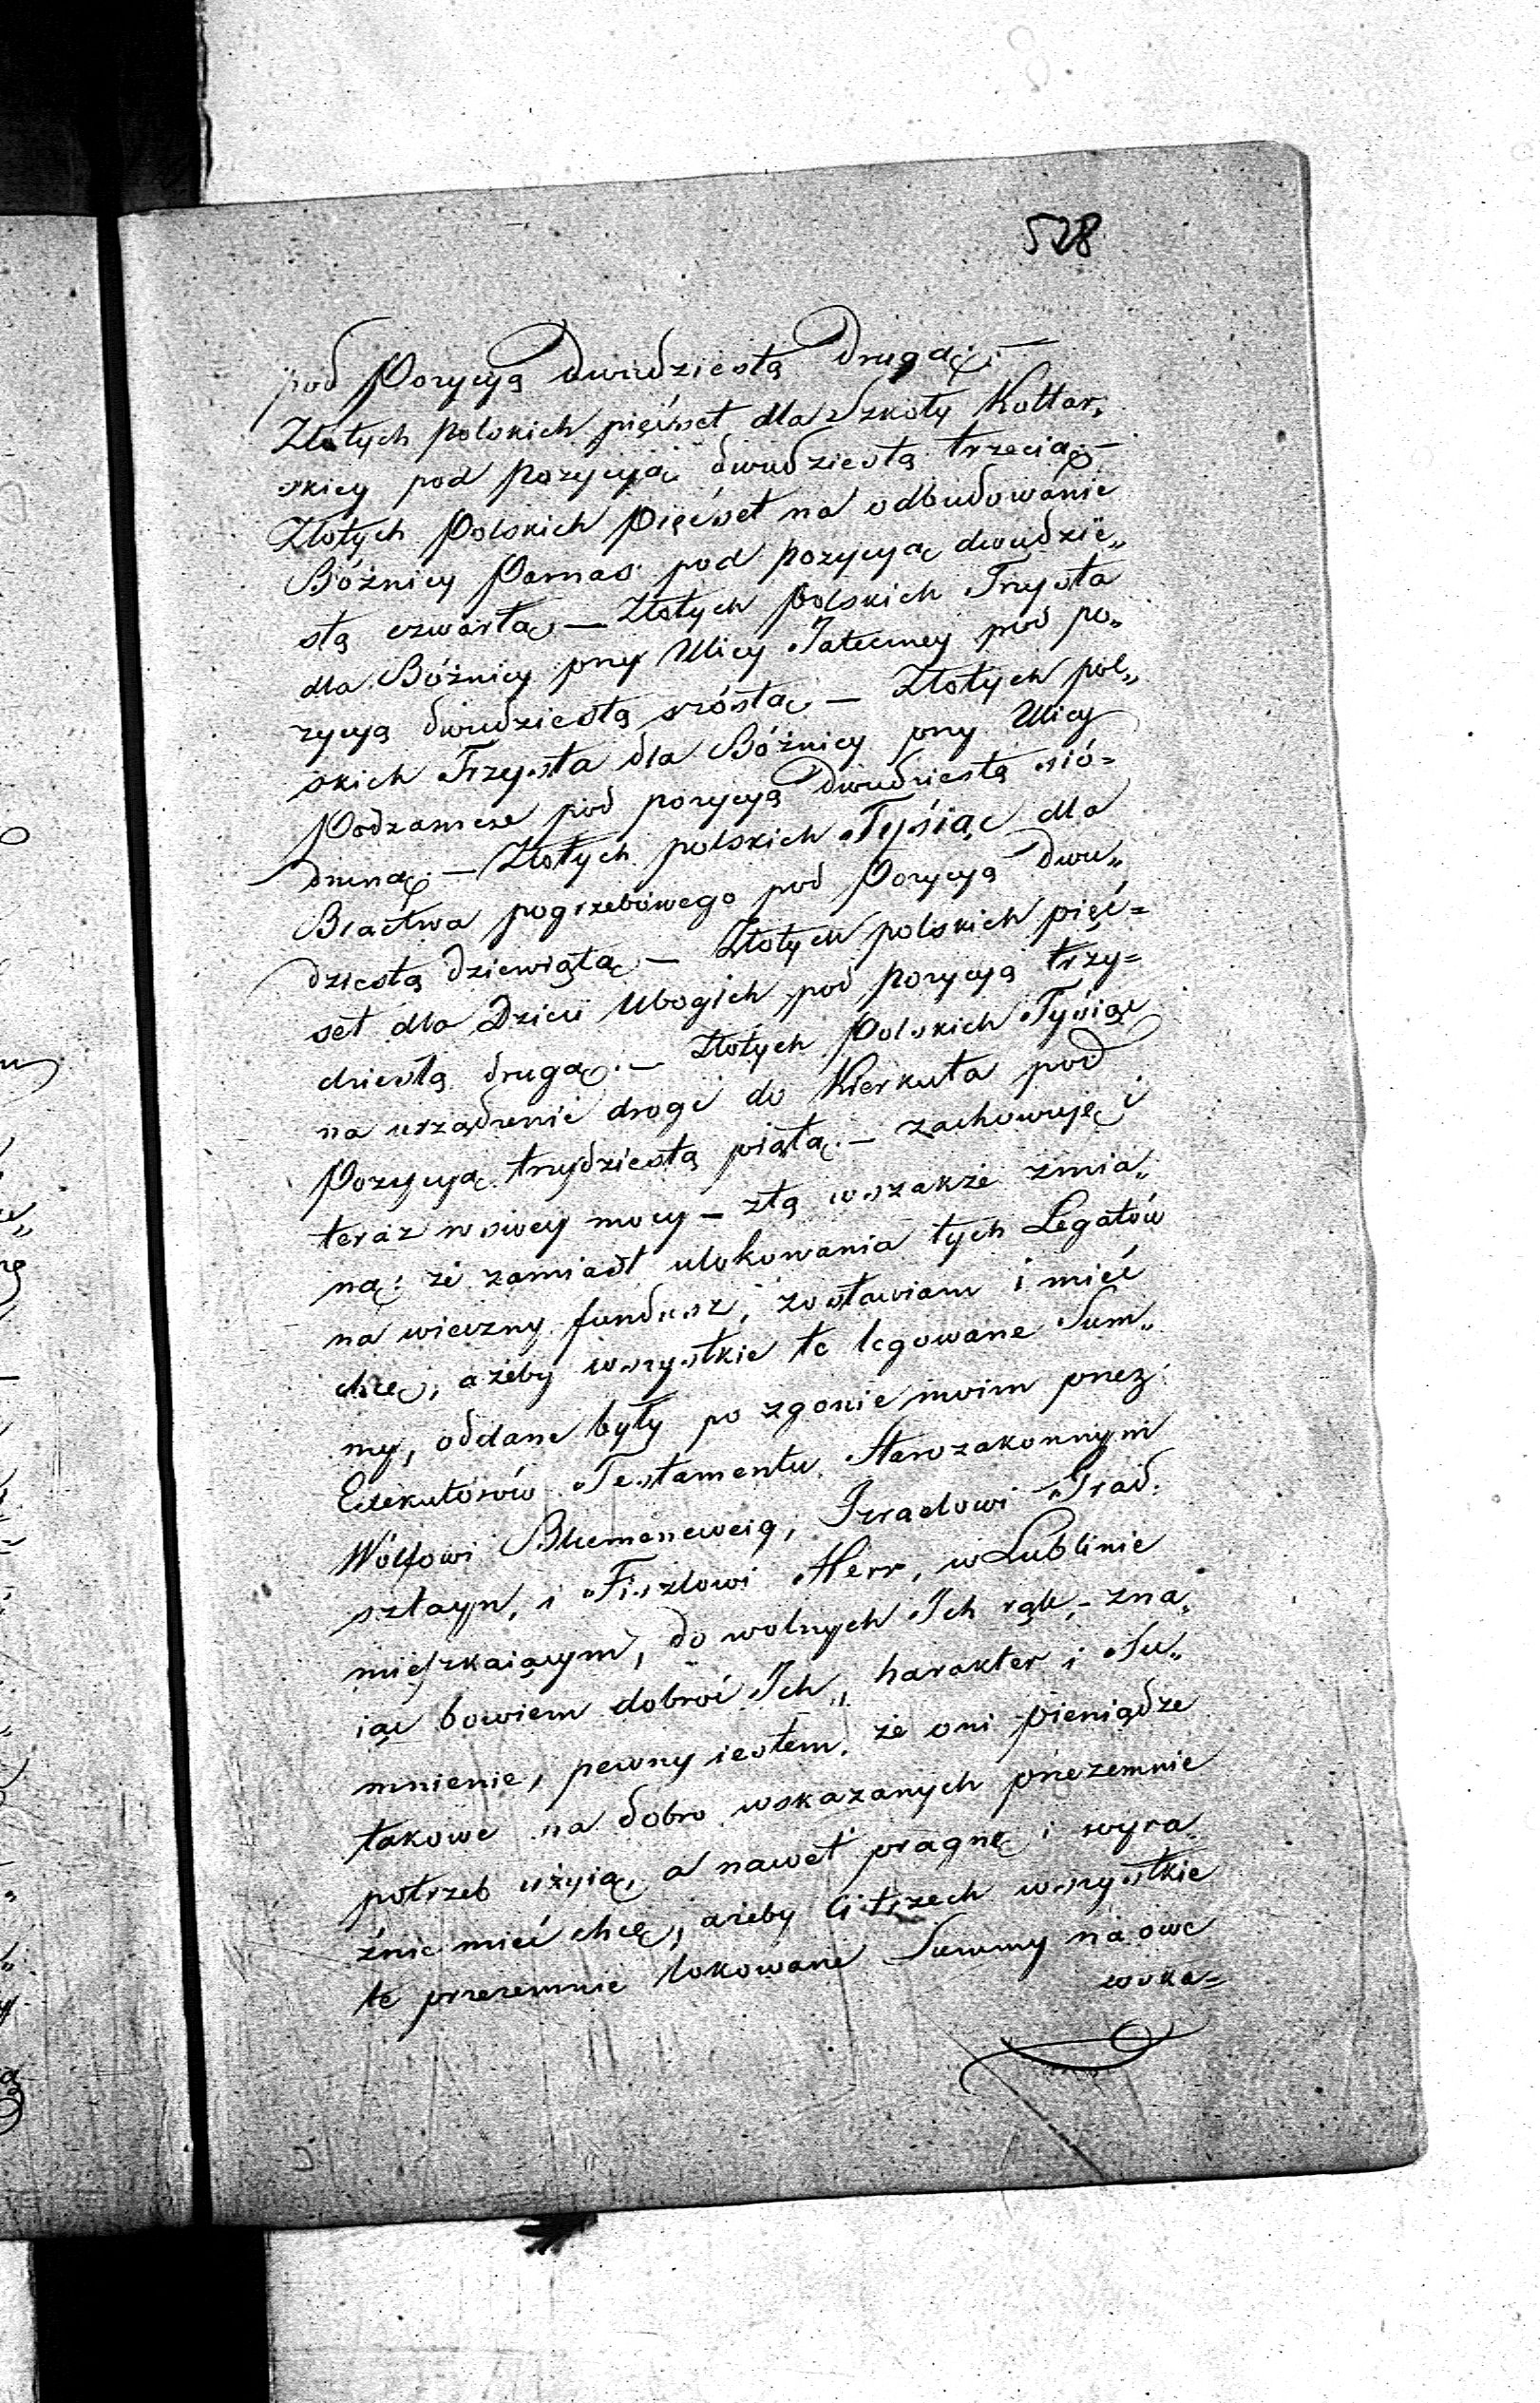 528
pod Pozycyą dwudziestą drugą; —
Złotych polskich pięćset dla Szkoły Kotlar„
skiey pod pozycyą dwudziestą trzecią; —
Złotych Polskich Pięćset na odbudowanie
Bóżnicy Parnas pod pozycyą dwudzie„
stą czwartą; — Złotych Polskich Trzysta
dla Bóżnicy przy Ulicy Jateczney pod po„
zycyą dwudziestą szóstą — Złotych pol„
skich Trzysta dla Bóżnicy przy Ulicy
Podzamcze pod pozycyą dwudziestą sió=
dmną; — Złotych polskich Tysiąc dla
Bractwa pogrzebowego pod Pozycyą dwu„
dziestą dziewiątą — Złotych polskich pięć=
set dla Dzieci Ubogich pod pozycyą trzy=
dziestą drugą. — Złotych Polskich Tysiąc
na urządzenie drogi do Kierkuta pod
Pozycyą trzydziestą piątą. — zachowuję i
teraz w swey mocy — ztą wszakże zmia„
ną: że zamiast ulokowania tych Legatów
na wieczny fundusz, zostawiam i mieć
chcę, ażeby wszystkie te legowane Sum„
my, oddane były po zgonie moim przez
Exekutorów Testamentu Starozakonnym
Wolfowi Blumencweig, Izraelowi Grad.
sztayn, i Fiszlowi Herr, w Lublinie
mieszkaiącym, do wolnych Ich rąk, — zna„
iąc bowiem dobroć Ich, harakter i Su„
mnienie, pewny iestem, że oni pieniądze
takowe na dobro wskazanych przezemnie
potrzeb użyią, a nawet pragnę i wyra„
źnie mieć chcę, ażeby Ci trzech wszystkie
te przezemnie lokowane Summy na owe
wska=